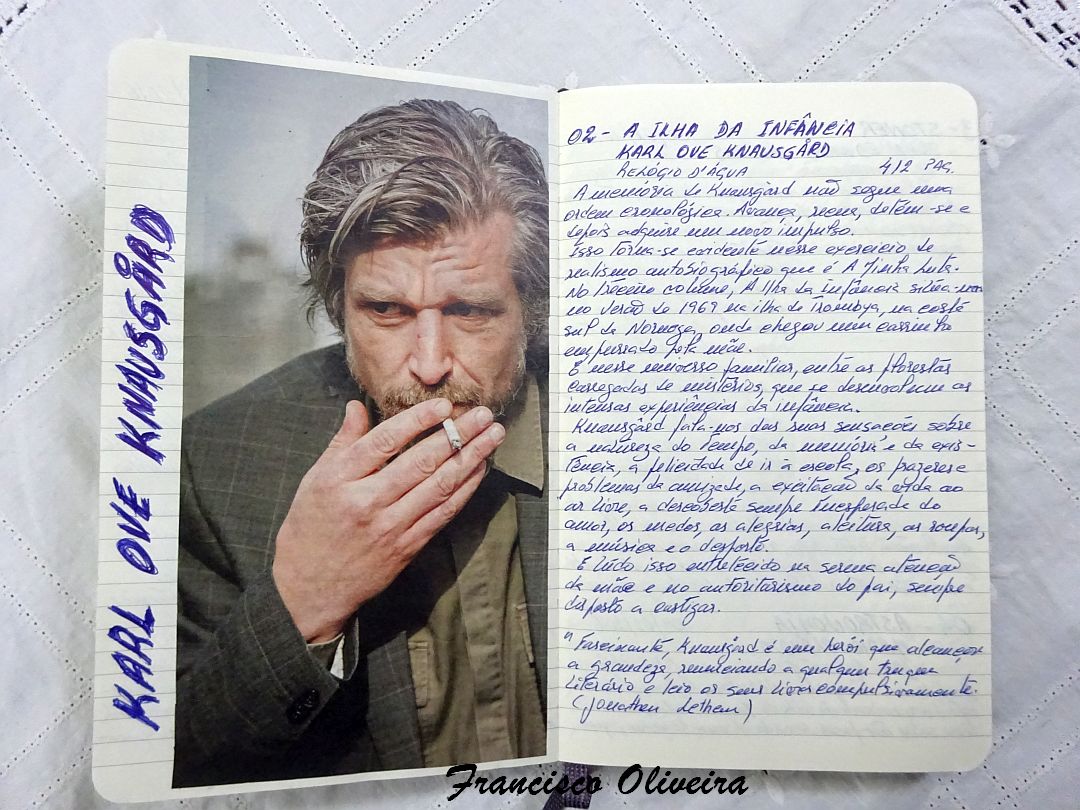 KARL OVE KNAUSGÅRD
02 - A ILHA DA INFÂNCIA
KARL OVE KNAUSGÅRD
RELÓGIO D'ÁGUA 412 PAG.
A memória de Knausgård não segue uma
ordem cronológica. Avança, recua, detém-se e
depois adquire um novo impulso.
Isso torna-se evidente nesse exercício de
realismo autobiográfico que é A Minha Luta.
No terceiro volume, A Ilha da Infância situa-nos
no verão de 1969 na ilha de Tromøya, na costa
sul da Noruega, onde chegou num carrinho
empurrado pela mãe.
É nesse universo familiar, entre as florestas
carregadas de mistérios, que se desenvolvem as
intensas experiências da infância.
Knausgård fala-nos das suas sensações sobre
a natureza do tempo, da memória e da exis-
tência, a felicidade de ir à escola, os prazeres e
problemas da amizade, a excitação da vida ao
ar livre, a descoberta sempre inesperada do
amor, os medos, as alegrias, a leitura, as roupas,
a música e o desporto.
E tudo isso entretecido na serena atenção
da mãe e no autoritarismo do pai, sempre
disposto a castigar.
"Fascinante, Knausgård é um herói que alcançou
a grandeza, renunciando a qualquer truque
literário e leio os seus livros compulsivamente.
(Jonathan Lethem)
Francisco Oliveira